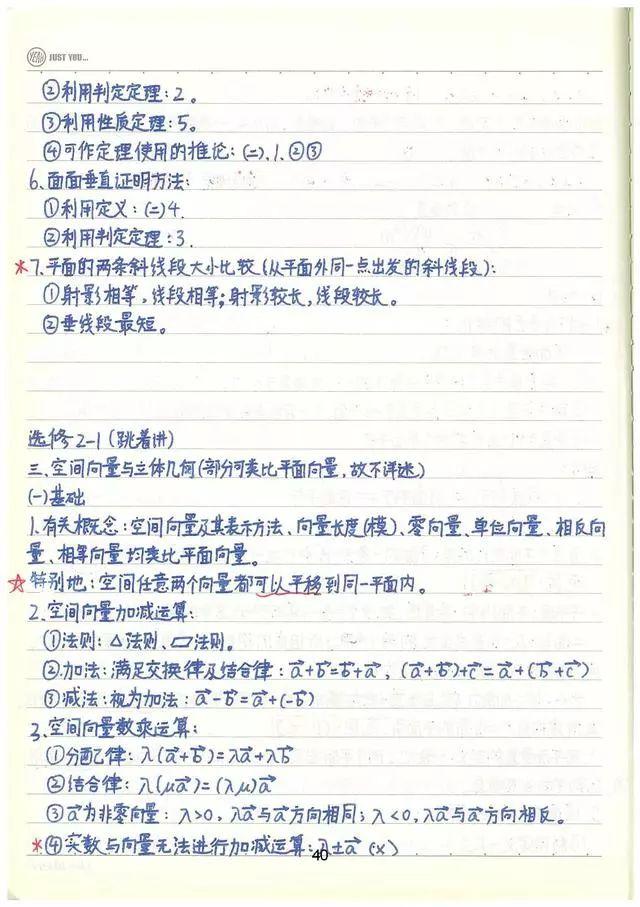 YEAH JUST YOU...
②利用判定定理:2。
③利用性质定理:5。
④可作定理使用的推论:(二).1.②③
6.面面垂直证明方法:
①利用定义:(二)4.
②利用判定定理:3.
*7.平面的两条斜线段大小比较(从平面外同一点出发的斜线段):
①射影相等,线段相等;射影较长,线段较长。
②垂线段最短。
选修2-1(跳着讲)
三、空间向量与立体几何(部分可类比平面向量,故不详述)
(一)基础
1.有关概念:空间向量及其表示方法、向量长度(模)、零向量、单位向量、相反向
量、相等向量均类比平面向量。
☆特别地:空间任意两个向量都可以平移到同一平面内。
2.空间向量加减运算:
①法则:△法则、▱法则。
②加法:满足交换律及结合律:a⃗+b⃗=b⃗+a⃗,(a⃗+b⃗)+c⃗=a⃗+(b⃗+c⃗)
③减法:视为加法:a⃗-b⃗=a⃗+(-b⃗)
3.空间向量数乘运算:
①分配律:λ(a⃗+b⃗)=λa⃗+λb⃗
②结合律:λ(μa⃗)=(λμ)a⃗
③a⃗为非零向量:λ>0,λa⃗与a⃗方向相同;λ<0,λa⃗与a⃗方向相反。
*④实数与向量无法进行加减运算:λ±a⃗(x)
40